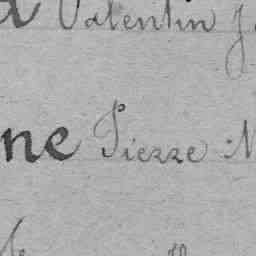 Valentin J
ne Pierre N